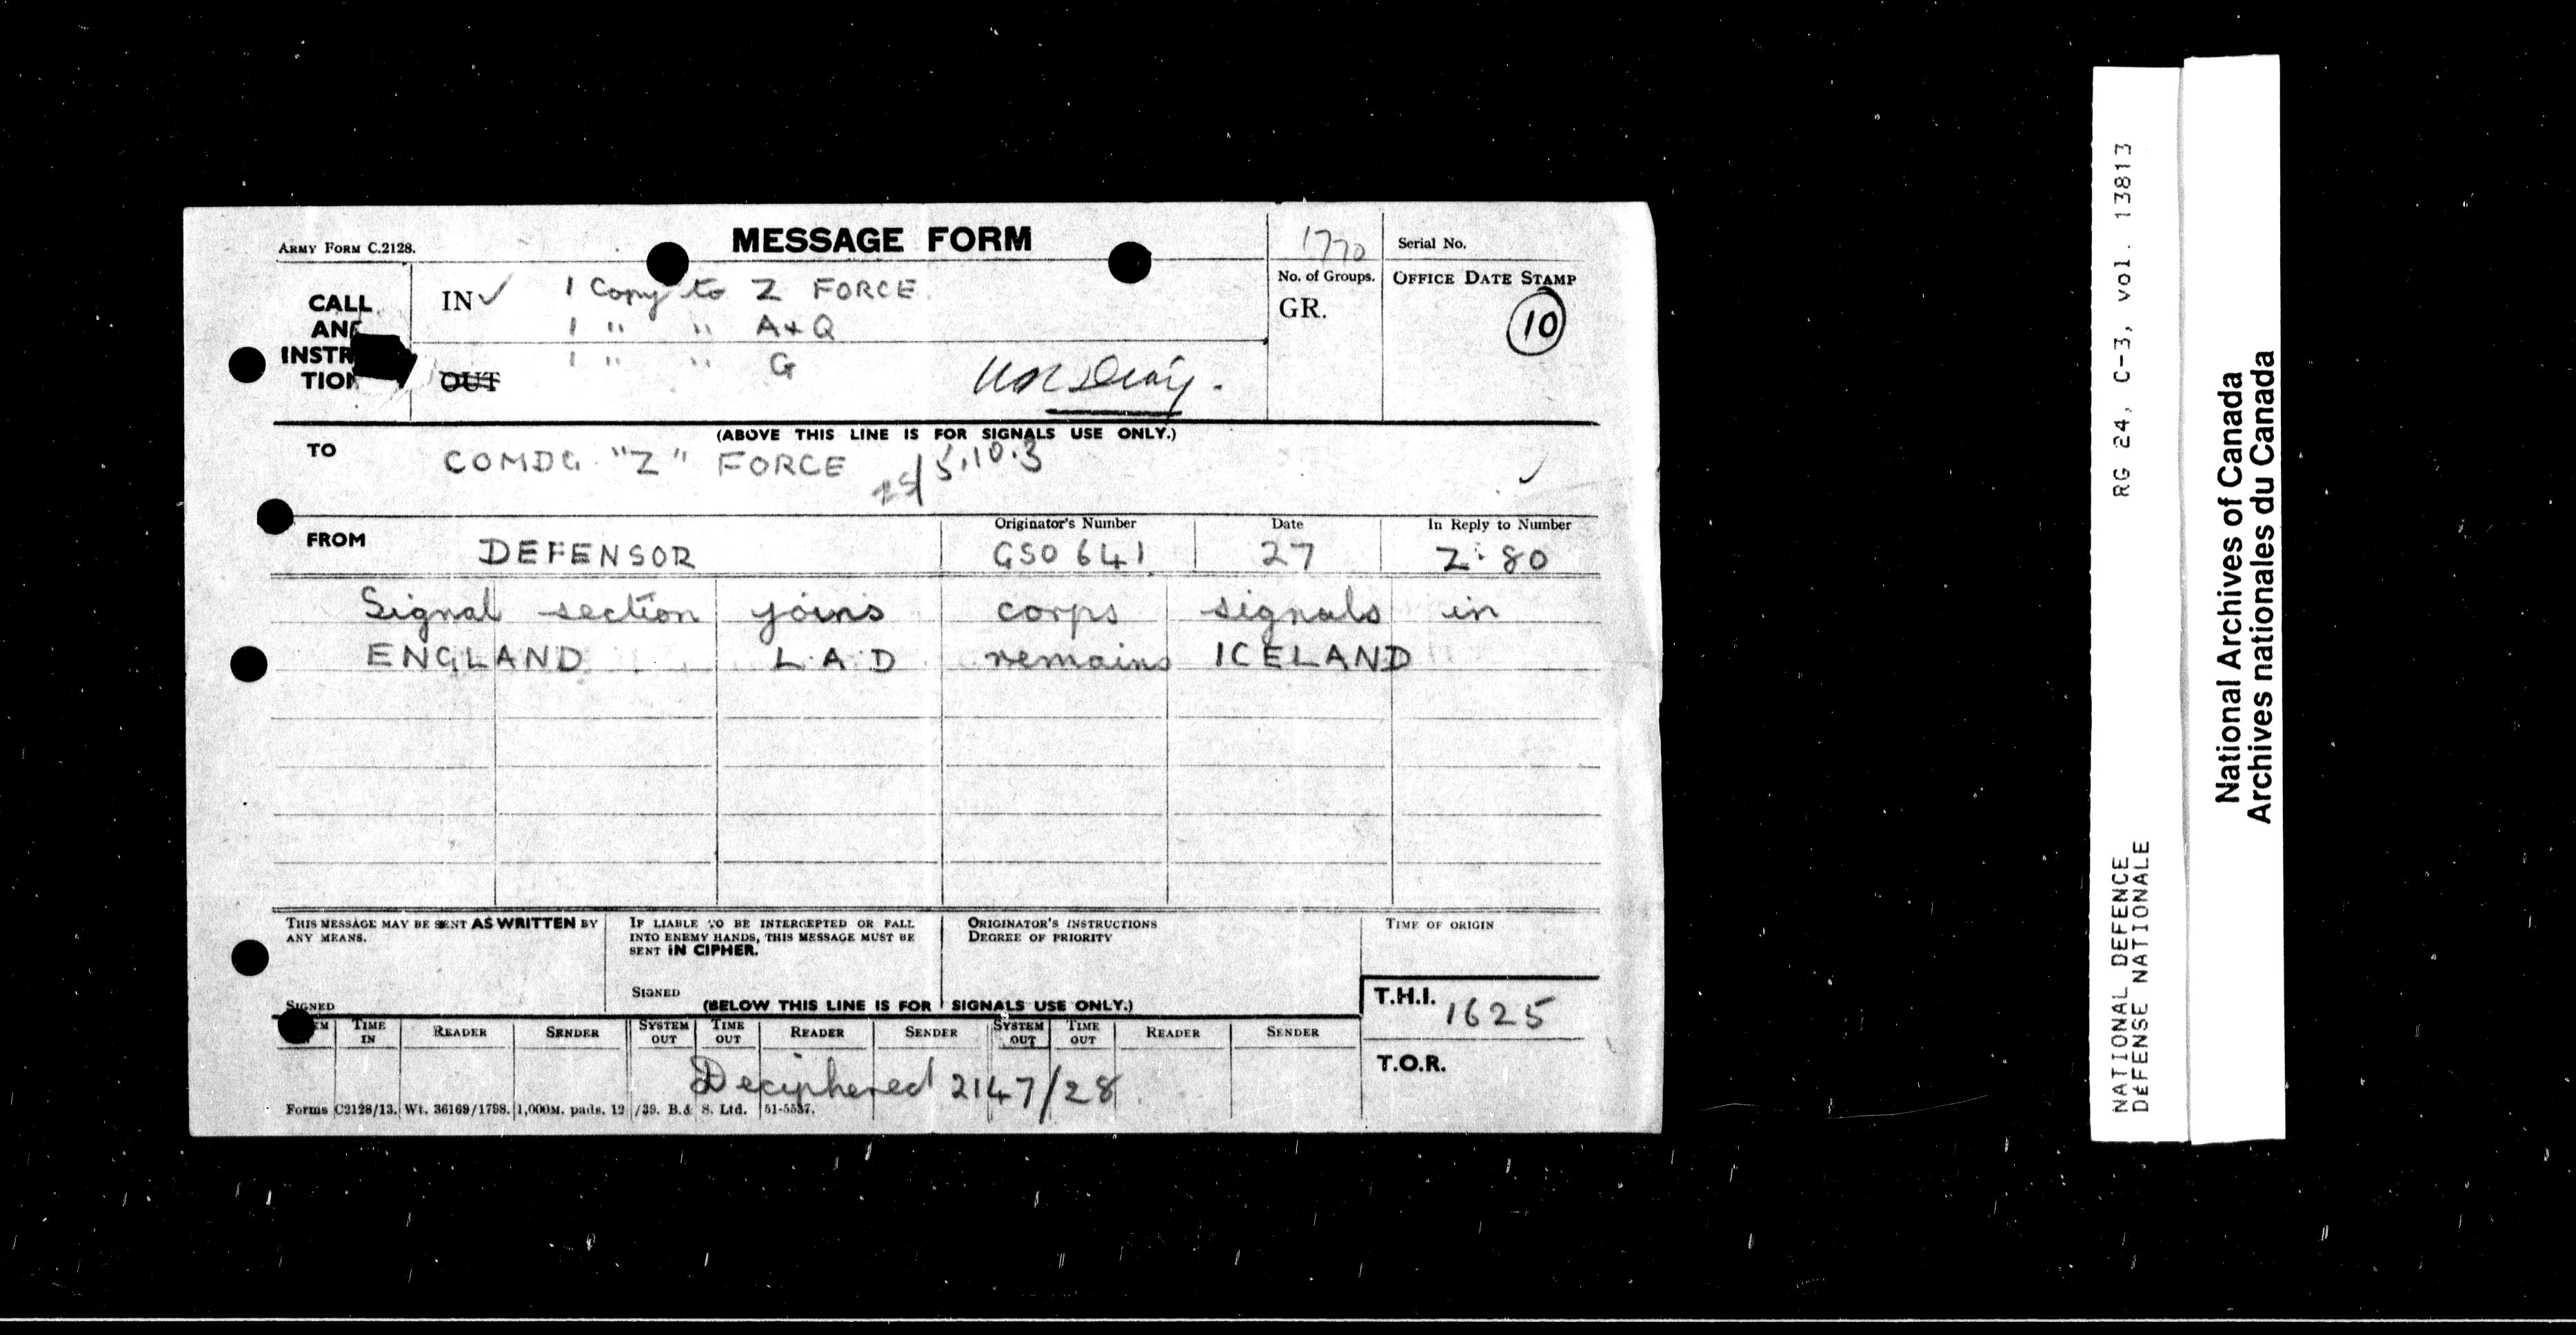 ARMY FORM C.2128.
MESSAGE FORM
1770
Serial No.
CALL
AND
INSTR
TION
IN ✓
1 Copy to Z FORCE
1 " " A & Q
1 " " G
OUT
War Diary.
No. of Groups.
GR.
OFFICE DATE STAMP
10
(ABOVE THIS LINE IS FOR SIGNALS USE ONLY.)
TO
COMDG "Z" FORCE
5.10.3
FROM
DEFENSOR
Originator's Number
GSO 641
Date
27
In Reply to Number
Z.80
Signal section joins corps signals in
ENGLAND L.A.D remains ICELAND
THIS MESSAGE MAY BE SENT AS WRITTEN BY
ANY MEANS.
SIGNED
IF LIABLE TO BE INTERCEPTED OR FALL
INTO ENEMY HANDS, THIS MESSAGE MUST BE
SENT IN CIPHER.
SIGNED
ORIGINATOR'S INSTRUCTIONS
DEGREE OF PRIORITY
TIME OF ORIGIN
(BELOW THIS LINE IS FOR SIGNALS USE ONLY.)
T.H.I. 1625
TIME IN
READER
SENDER
SYSTEM OUT
TIME OUT
READER
SENDER
SYSTEM OUT
TIME OUT
READER
SENDER
T.O.R.
Deciphered 2147/28
Forms C2128/13. Wt. 36169/1798. 1,000M. pads. 12/39. B.& S. Ltd. 51-5537.
RG 24, C-3, vol. 13813
NATIONAL DEFENCE
DÉFENSE NATIONALE
National Archives of Canada
Archives nationales du Canada